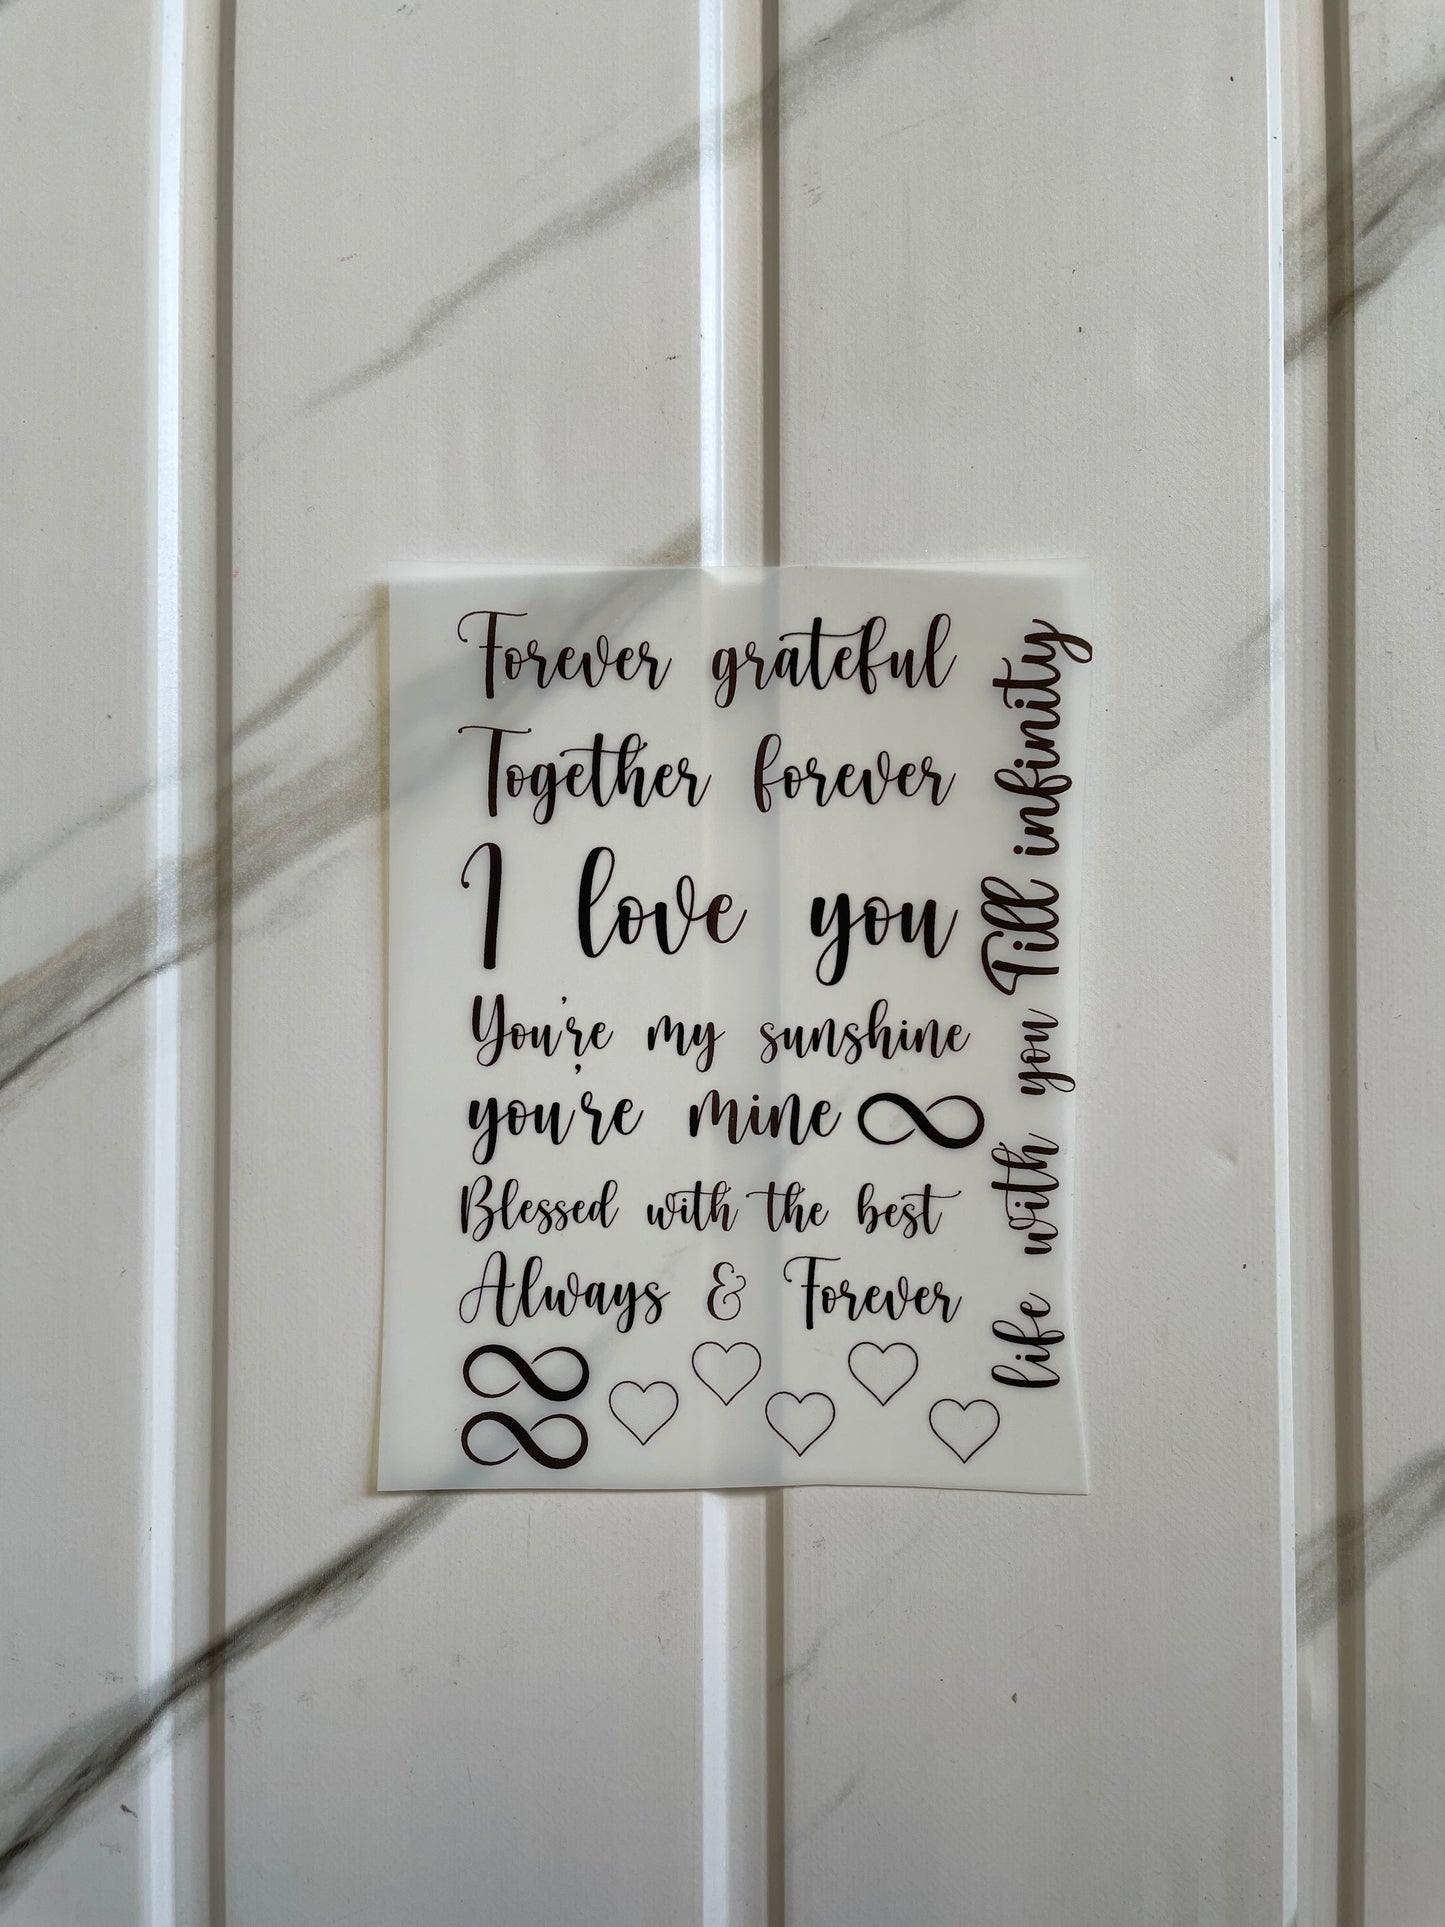 Forever grateful
Together forever
I love you
You're my sunshine
you're mine
Blessed with the best
Always & Forever
life with you Till infinity